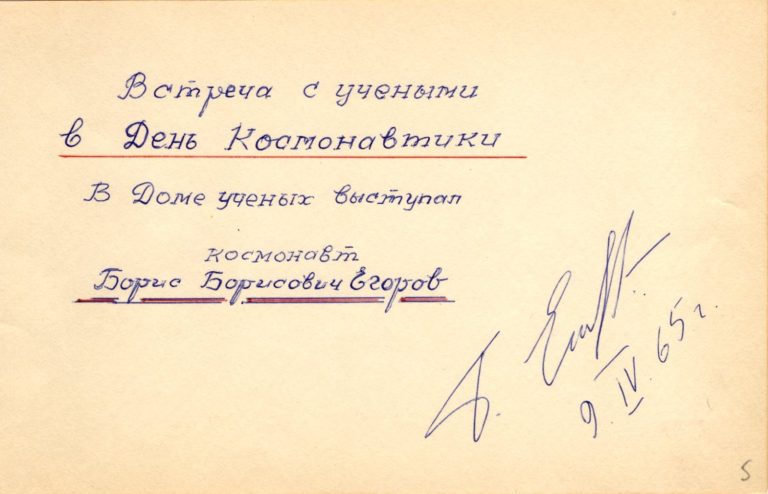 Встреча с учеными
в День Космонавтики
В Доме ученых выступал
космонавт
Борис Борисович Егоров
Б. Егоров
9.IV.65г.
5